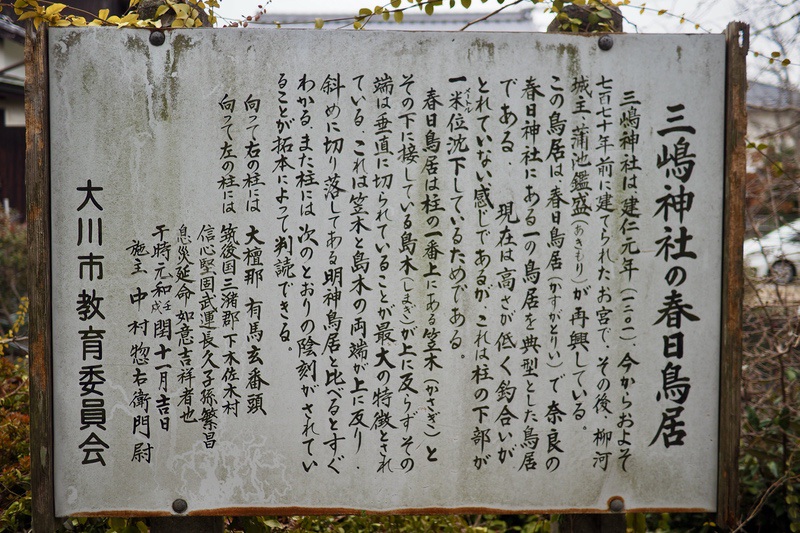 三嶋神社の春日鳥居
三嶋神社は建仁元年(一二〇一)、今からおよそ
七百七十年前に建てられたお宮で、その後、柳河
城主、蒲池鑑盛(あきもり)が再興している。
この鳥居は、春日鳥居(かすがとりい)で奈良の
春日神社にある一の鳥居を典型とした鳥居
である。現在は高さが低く釣合いが
とれていない感じであるが、これは柱の下部が
一米位沈下しているためである。
メートル
春日鳥居は柱の一番上にある笠木(かさぎ)と
その下に接している島木(しまぎ)が上に反らずその
端は垂直に切られていることが最大の特徴とされ
ている。これは笠木と島木の両端が上に反り、
斜めに切り落してある明神鳥居と比べるとすぐ
わかる。また柱には次のとおりの陰刻がされてい
ることが拓本によって判読できる。
向って右の柱には 大檀那 有馬玄蕃頭
向って左の柱には 筑後国三潴郡下木佐木村
信心堅固武運長久子孫繁昌
息災延命如意吉祥者也
于時元和壬戌閏十一月吉日
施主 中村惣右衛門尉
大川市教育委員会